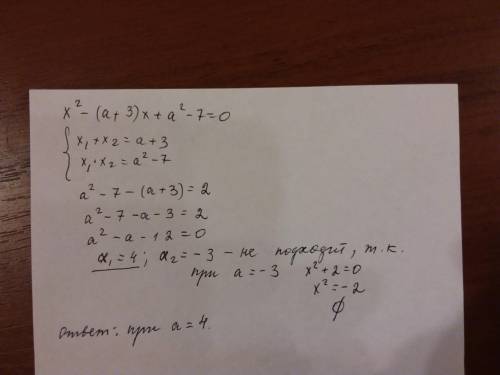 x² - (a+3)x + a² - 7 = 0
{ x₁ + x₂ = a + 3
x₁ · x₂ = a² - 7
a² - 7 - (a+3) = 2
a² - 7 - a - 3 = 2
a² - a - 12 = 0
a₁ = 4; a₂ = -3 - не подходит, т.к.
при a = -3 x² + 2 = 0
x² = -2
∅
ответ: при a = 4.